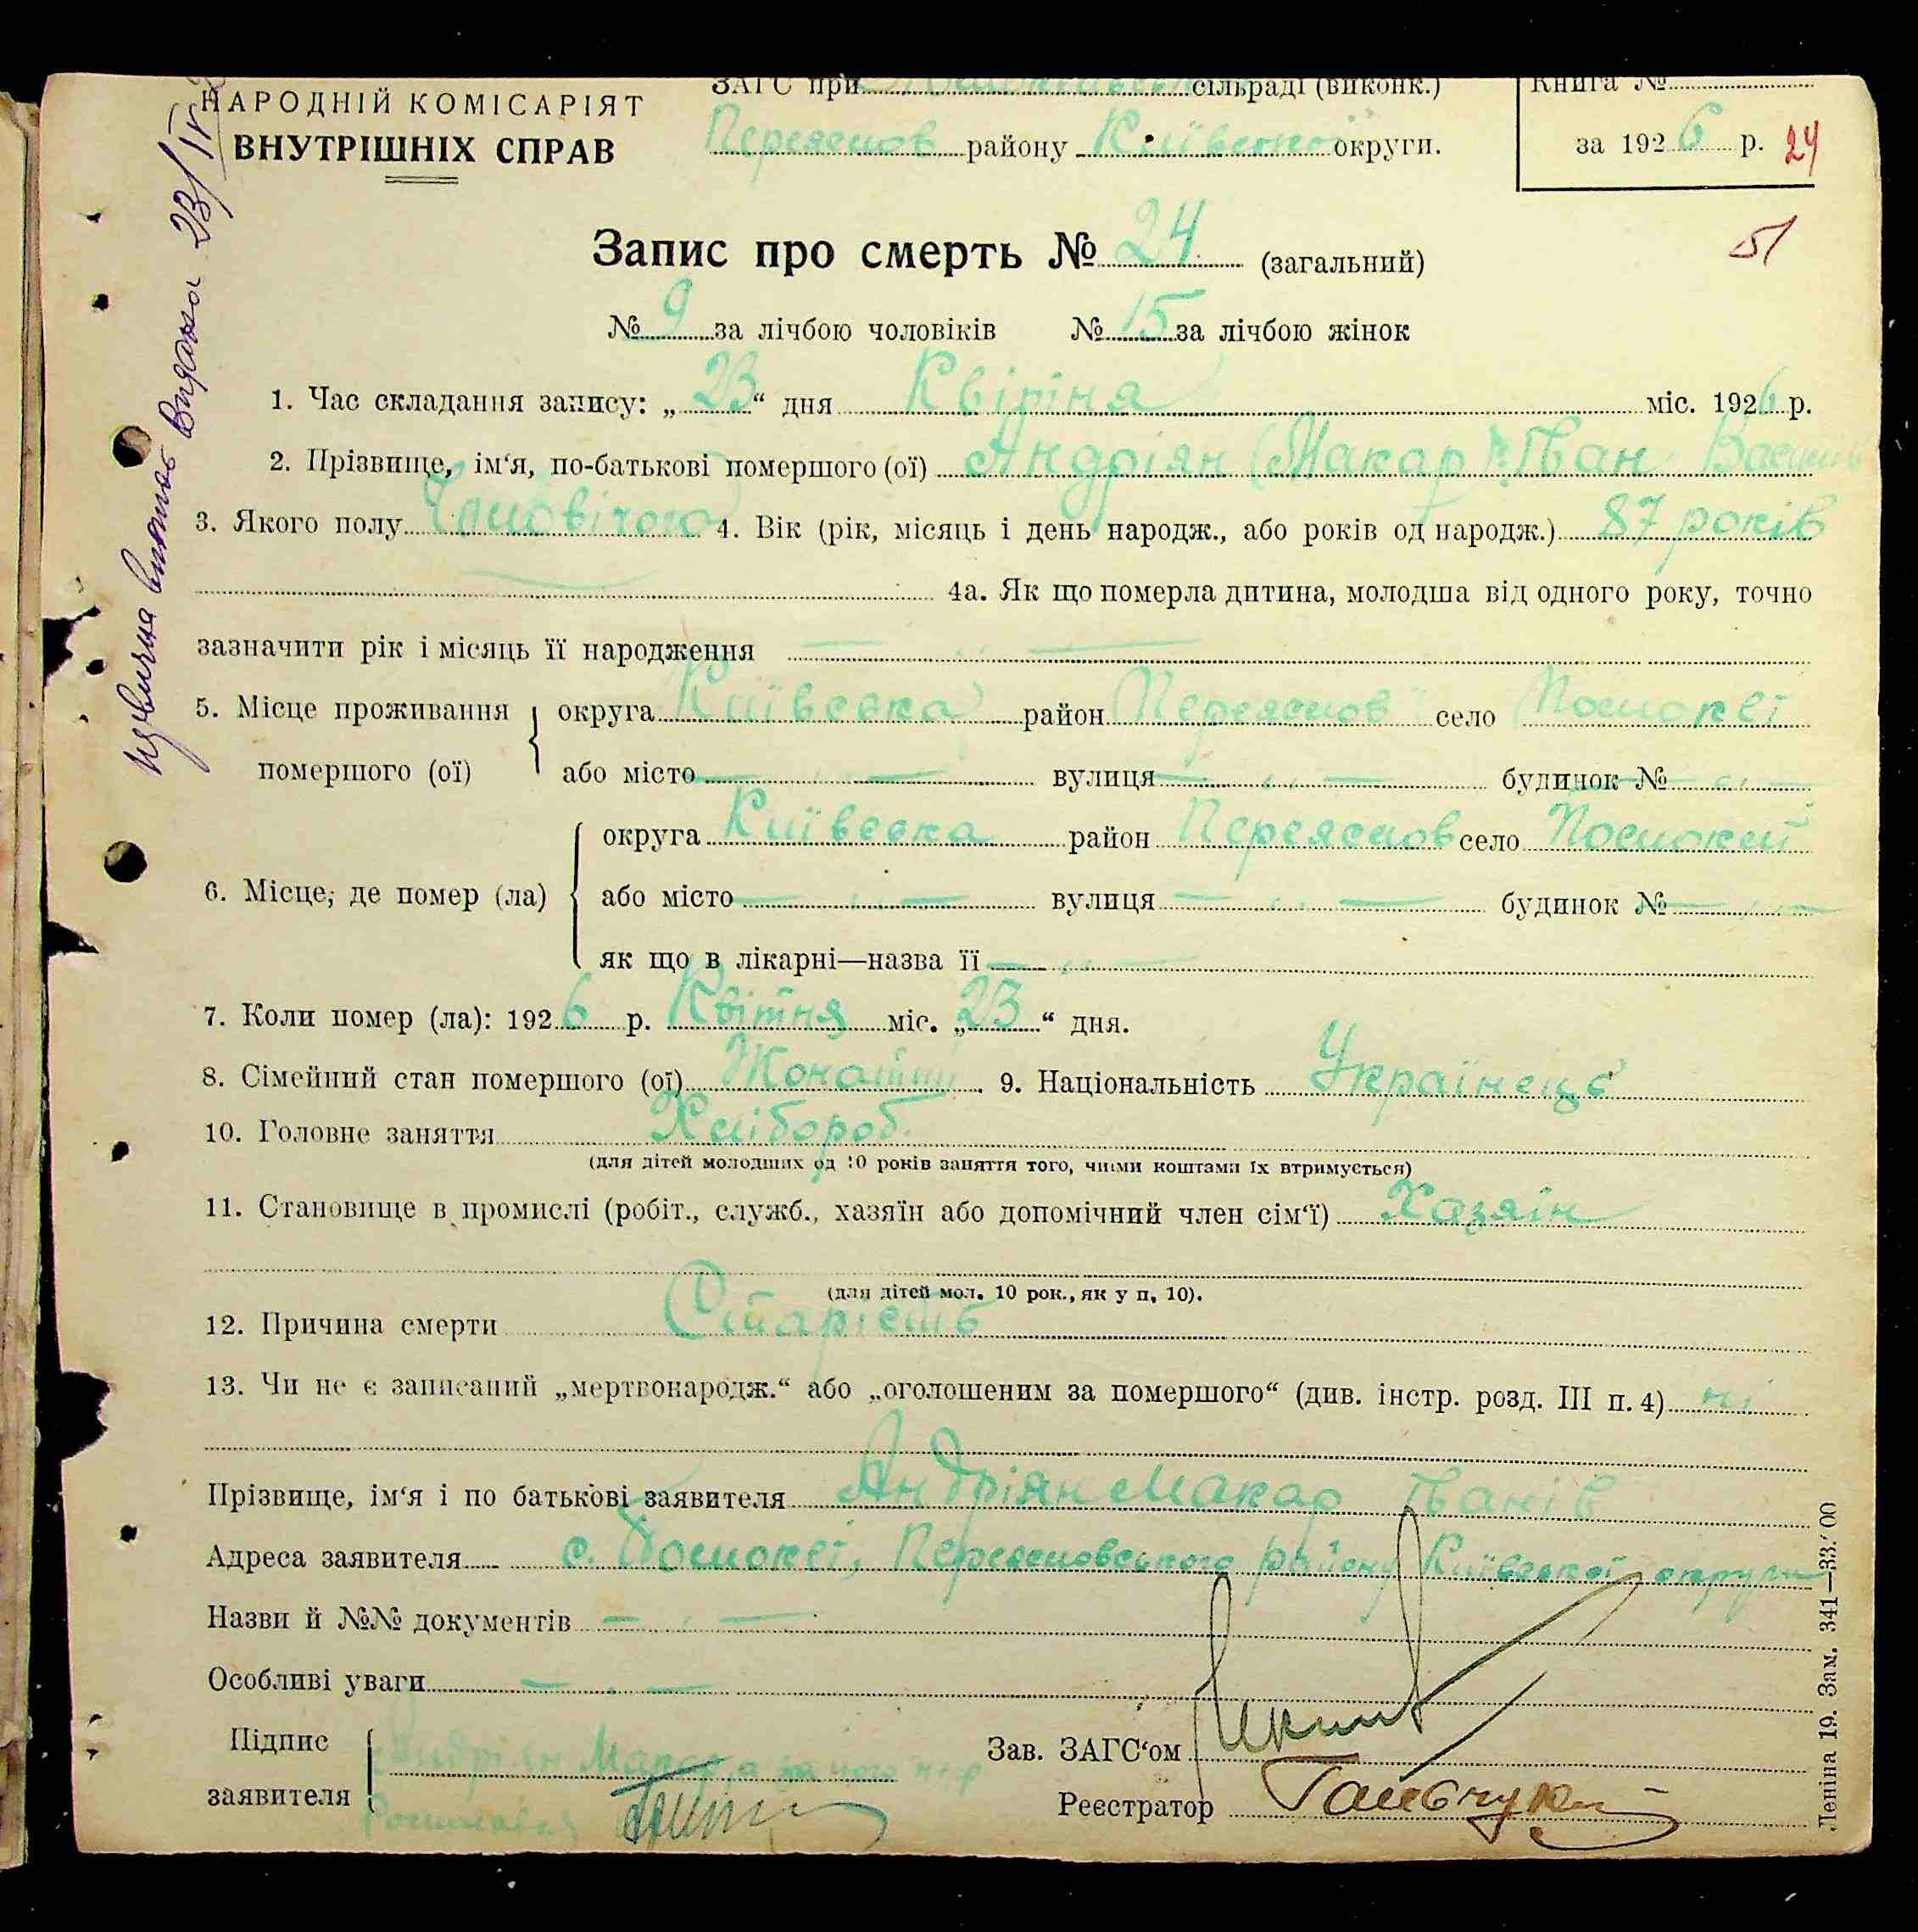 НАРОДНІЙ КОМІСАРІЯТ
ВНУТРІШНІХ СПРАВ
ЗАГС при сільраді (виконк.)
Переяслов району Київської округи.
Книга №
за 1926 р. 24
51
Запис про смерть № 24 (загальний)
№ 9 за лічбою чоловіків № 15 за лічбою жінок
1. Час складання запису: „23“ дня Квітня міс. 1926 р.
2. Прізвище, ім‘я, по-батькові помершого (ої) Андріян (Макар) Іван
3. Якого полу Чоловічого 4. Вік (рік, місяць і день народж., або років од народж.) 87 років
4а. Як що померла дитина, молодша від одного року, точно
зазначити рік і місяць її народження —
5. Місце проживання помершого (ої) округа Київська район Переяслов село
або місто — вулиця — будинок № —
6. Місце, де помер (ла) округа Київська район Переяслов село
або місто — вулиця — будинок № —
як що в лікарні—назва її —
7. Коли помер (ла): 1926 р. Квітня міс. „23“ дня.
8. Сімейний стан помершого (ої) Жонатий. 9. Національність Українець
10. Головне заняття Хлібороб
(для дітей молодших од 10 років заняття того, чиїми коштами їх втримується)
11. Становище в промислі (робіт., служб., хазяїн або допомічний член сім‘ї) Хазяїн
(для дітей мол. 10 рок., як у п. 10).
12. Причина смерти Старість
13. Чи не є записаний „мертвонародж.“ або „оголошеним за помершого“ (див. інстр. розд. III п. 4) ні
Прізвище, ім‘я і по батькові заявителя Андріян Макар Іванів
Адреса заявителя с. Переясловського району Київської округи
Назви й №№ документів —
Особливі уваги —
Підпис заявителя Андріян Макар, а за його
Зав. ЗАГС‘ом
Реєстратор
Леніна 19. Зам. 341—33.' 00
витяг Видана 23/IV